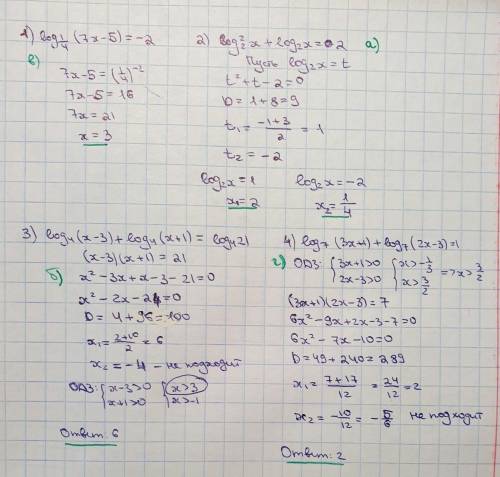 1) log₁/₄(7x-5) = -2
в)
7x-5 = (1/4)⁻²
7x-5 = 16
7x = 21
x = 3
2) log₂²x + log₂x = 2 а)
Пусть log₂x = t
t² + t - 2 = 0
D = 1+8 = 9
t₁ = (-1+3)/2 = 1
t₂ = -2
log₂x = 1 log₂x = -2
x₁ = 2 x₂ = 1/4
3) log₄(x-3) + log₄(x+1) = log₄21
(x-3)(x+1) = 21
б) x² - 3x + x - 3 - 21 = 0
x² - 2x - 24 = 0
D = 4 + 96 = 100
x₁ = (2+10)/2 = 6
x₂ = -4 - не подходит
ОДЗ: {x-3>0 {x>3
{x+1>0 {x>-1
Ответ: 6
4) log₇(3x+1) + log₇(2x-3) = 1
г) ОДЗ: {3x+1>0 {x>-1/3 => x > 3/2
{2x-3>0 {x>3/2
(3x+1)(2x-3) = 7
6x² - 9x + 2x - 3 - 7 = 0
6x² - 7x - 10 = 0
D = 49 + 240 = 289
x₁ = (7+17)/12 = 24/12 = 2
x₂ = -10/12 = -5/6 не подходит
Ответ: 2